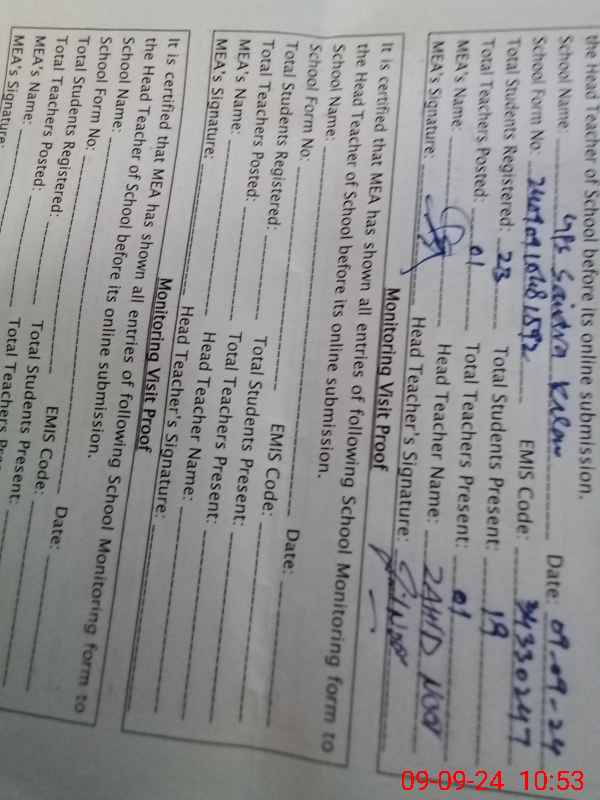 the Head Teacher of School before its online submission.
School Name: GPS Saidra Kalan Date: 09-09-24
School Form No: EMIS Code: 34330247
Total Students Registered: 23 Total Students Present: 19
Total Teachers Posted: 01 Total Teachers Present: 01
MEA's Name: Head Teacher Name: ZAHID NOOR
MEA's Signature: Head Teacher's Signature:
Monitoring Visit Proof
It is certified that MEA has shown all entries of following School Monitoring form to
the Head Teacher of School before its online submission.
School Name: Date:
School Form No: EMIS Code:
Total Students Registered: Total Students Present:
Total Teachers Posted: Total Teachers Present:
MEA's Name: Head Teacher Name:
MEA's Signature: Head Teacher's Signature:
Monitoring Visit Proof
It is certified that MEA has shown all entries of following School Monitoring form to
the Head Teacher of School before its online submission.
School Name: Date:
School Form No: EMIS Code:
Total Students Registered: Total Students Present:
Total Teachers Posted: Total Teachers Pre
MEA's Name:
MEA's Signature:
09-09-24 10:53